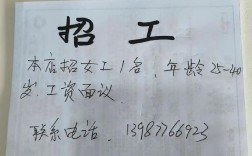 招工
本店招女工1名，年龄25-40
岁.工资面议.
联系电话.13987766923